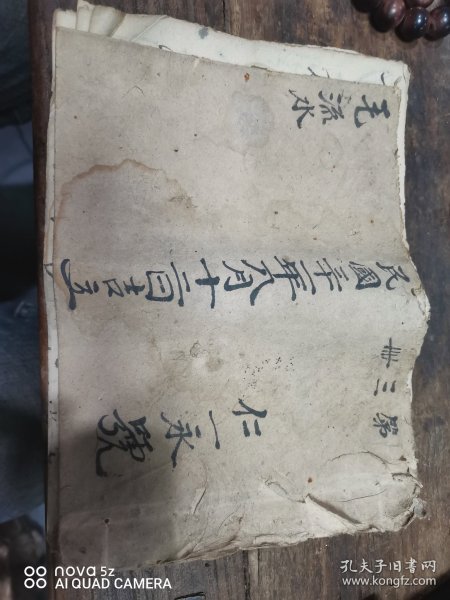 第三册
仁一永號
民國三十一年八月十二日吉立
毛流水
nova 5z
AI QUAD CAMERA
孔夫子旧书网
www.kongfz.com